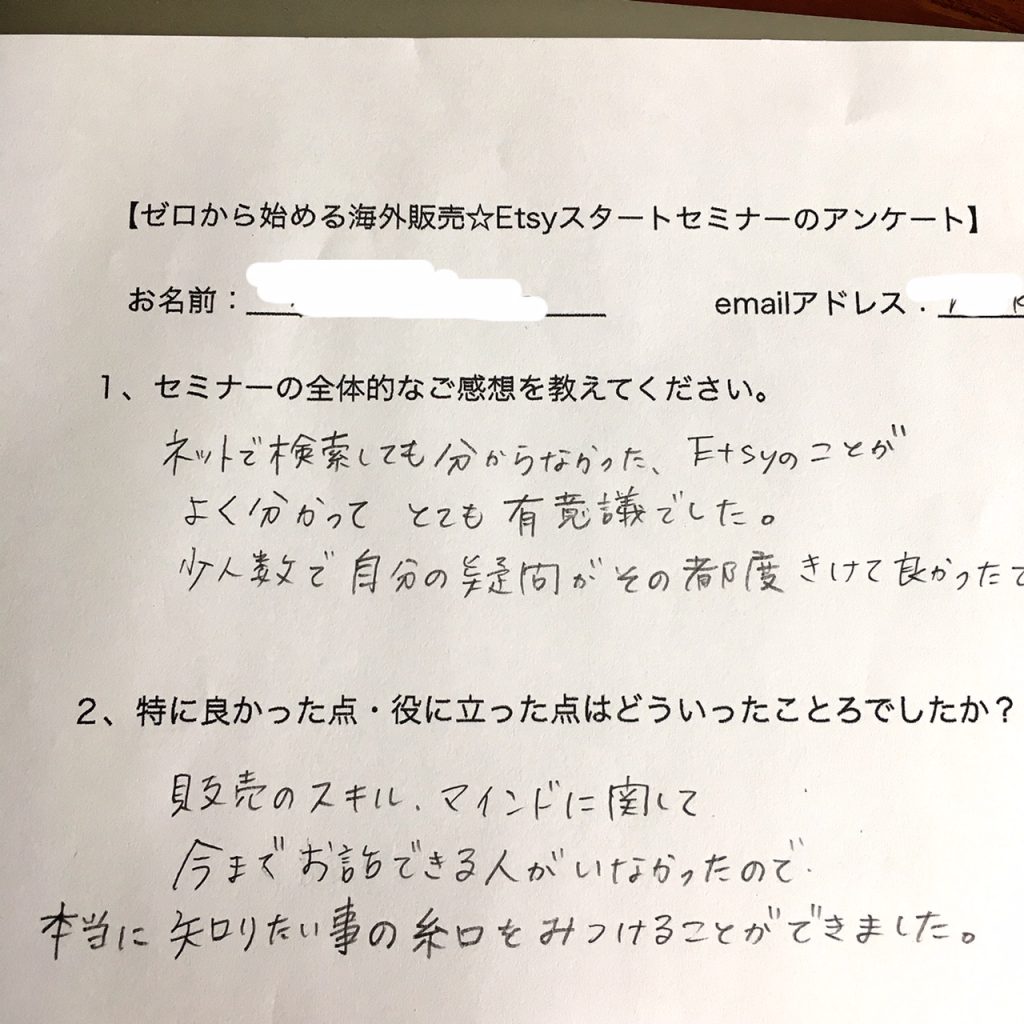 【ゼロから始める海外販売☆Etsyスタートセミナーのアンケート】
お名前： emailアドレス：
1、セミナーの全体的なご感想を教えてください。
ネットで検索しても分からなかった、Etsyのことが
よく分かって とても 有意議でした。
少人数で自分の疑問がその都度きけて良かったで
2、特に良かった点・役に立った点はどういったことろでしたか？
販売のスキル、マインドに関して
今までお話できる人がいなかったので
本当に知りたい事の糸口をみつけることができました。